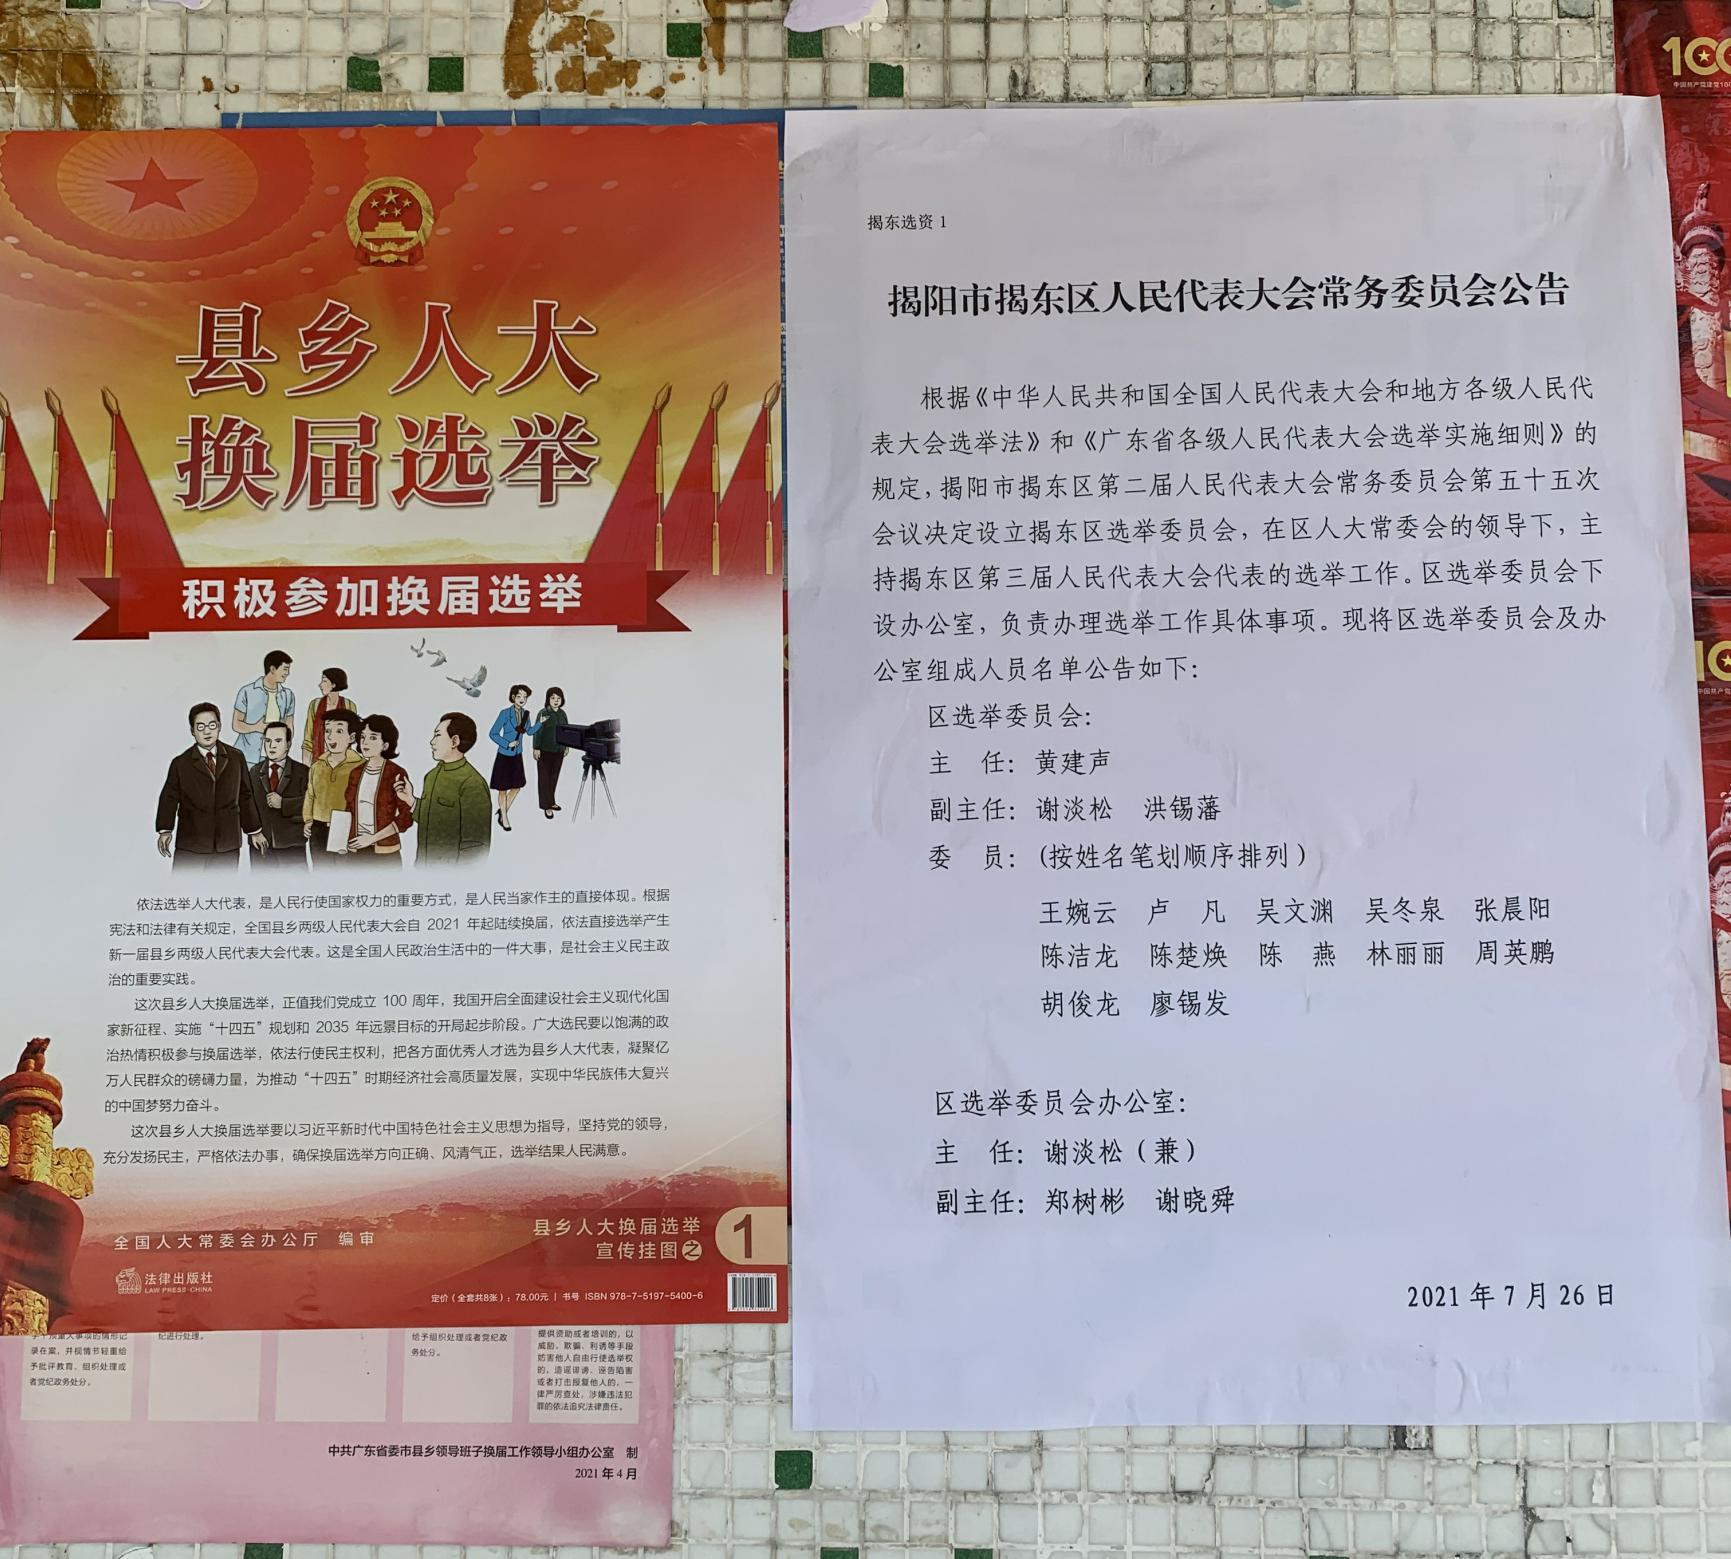 县乡人大
换届选举
积极参加换届选举
依法选举人大代表，是人民行使国家权力的重要方式，是人民当家作主的直接体现。根据
宪法和法律有关规定，全国县乡两级人民代表大会自 2021 年起陆续换届，依法直接选举产生
新一届县乡两级人民代表大会代表。这是全国人民政治生活中的一件大事，是社会主义民主政
治的重要实践。
这次县乡人大换届选举，正值我们党成立 100 周年，我国开启全面建设社会主义现代化国
家新征程、实施“十四五”规划和 2035 年远景目标的开局起步阶段。广大选民要以饱满的政
治热情积极参与换届选举，依法行使民主权利，把各方面优秀人才选为县乡人大代表，凝聚亿
万人民群众的磅礴力量，为推动“十四五”时期经济社会高质量发展，实现中华民族伟大复兴
的中国梦努力奋斗。
这次县乡人大换届选举要以习近平新时代中国特色社会主义思想为指导，坚持党的领导，
充分发扬民主，严格依法办事，确保换届选举方向正确、风清气正，选举结果人民满意。
全国人大常委会办公厅 编审
县乡人大换届选举
宣传挂图之
1
法律出版社
LAW PRESS·CHINA
定价（全套共8张）：78.00元 | 书号 ISBN 978-7-5197-5400-6
录在案，并视情节轻重给
予批评教育、组织处理或
者党纪政务处分。
纪进行处理。
给予组织处理或者党纪政
务处分。
提供资助或者培训的，以
威胁、欺骗、利诱等手段
妨害他人自由行使选举权
的，造谣诽谤、诬告陷害
或者打击报复他人的，一
律严厉查处，涉嫌违法犯
罪的依法追究法律责任。
中共广东省委市县乡领导班子换届工作领导小组办公室 制
2021 年 4 月
揭东选资 1
揭阳市揭东区人民代表大会常务委员会公告
根据《中华人民共和国全国人民代表大会和地方各级人民代
表大会选举法》和《广东省各级人民代表大会选举实施细则》的
规定，揭阳市揭东区第二届人民代表大会常务委员会第五十五次
会议决定设立揭东区选举委员会，在区人大常委会的领导下，主
持揭东区第三届人民代表大会代表的选举工作。区选举委员会下
设办公室，负责办理选举工作具体事项。现将区选举委员会及办
公室组成人员名单公告如下：
区选举委员会：
主 任：黄建声
副主任：谢淡松 洪锡藩
委 员：(按姓名笔划顺序排列)
王婉云 卢 凡 吴文渊 吴冬泉 张晨阳
陈洁龙 陈楚焕 陈 燕 林丽丽 周英鹏
胡俊龙 廖锡发
区选举委员会办公室：
主 任：谢淡松（兼）
副主任：郑树彬 谢晓舜
2021 年 7 月 26 日
100